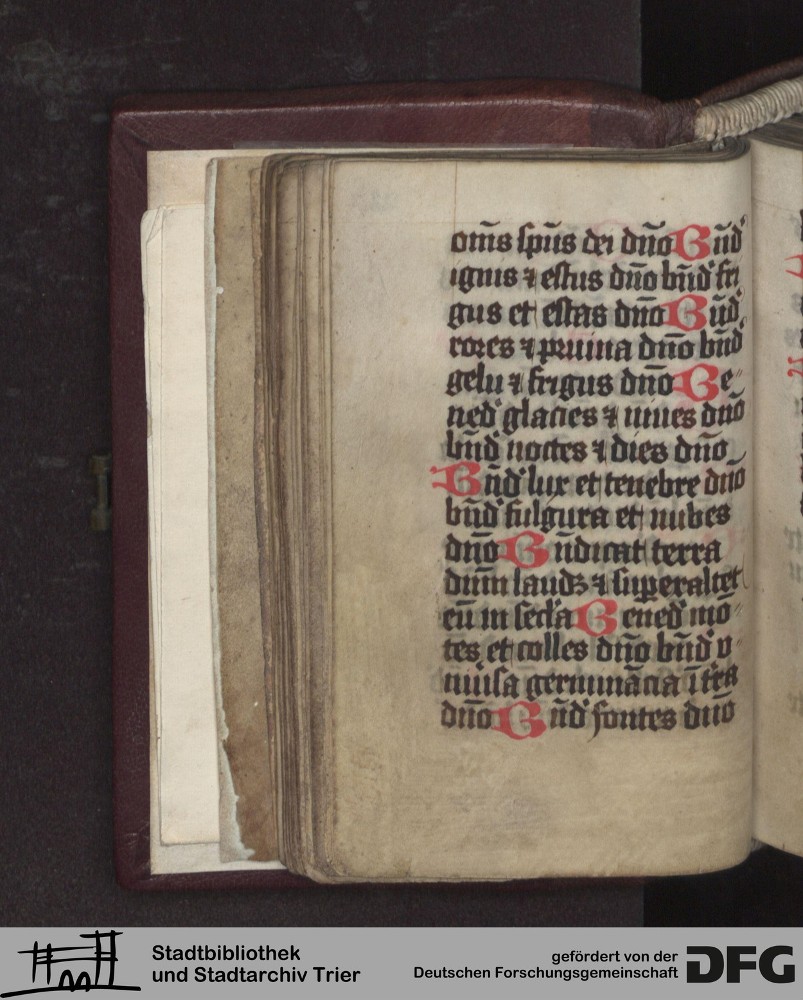 om̅s sp̅us dei dn̅o Bn̅d'
ignis ⁊ estus dn̅o bn̅d' fri
gus et estas dn̅o Bn̅d'
rores ⁊ pruina dn̅o bn̅d'
gelu ⁊ frigus dn̅o Be
ned' glacies ⁊ niues dn̅o
bn̅d' noctes ⁊ dies dn̅o
Bn̅d' lux et tenebre dn̅o
bn̅d' fulgura et nubes
dn̅o Bn̅dicat terra
dn̅m laudꝫ ⁊ superaltet
eu̅ in sec̅la Bened' mo̅
tes et colles dn̅o bn̅d' v
niu̅sa germina̅cia i̅ t̅ra
dn̅o Bn̅d' fontes dn̅o
Stadtbibliothek
und Stadtarchiv Trier
gefördert von der
Deutschen Forschungsgemeinschaft
DFG